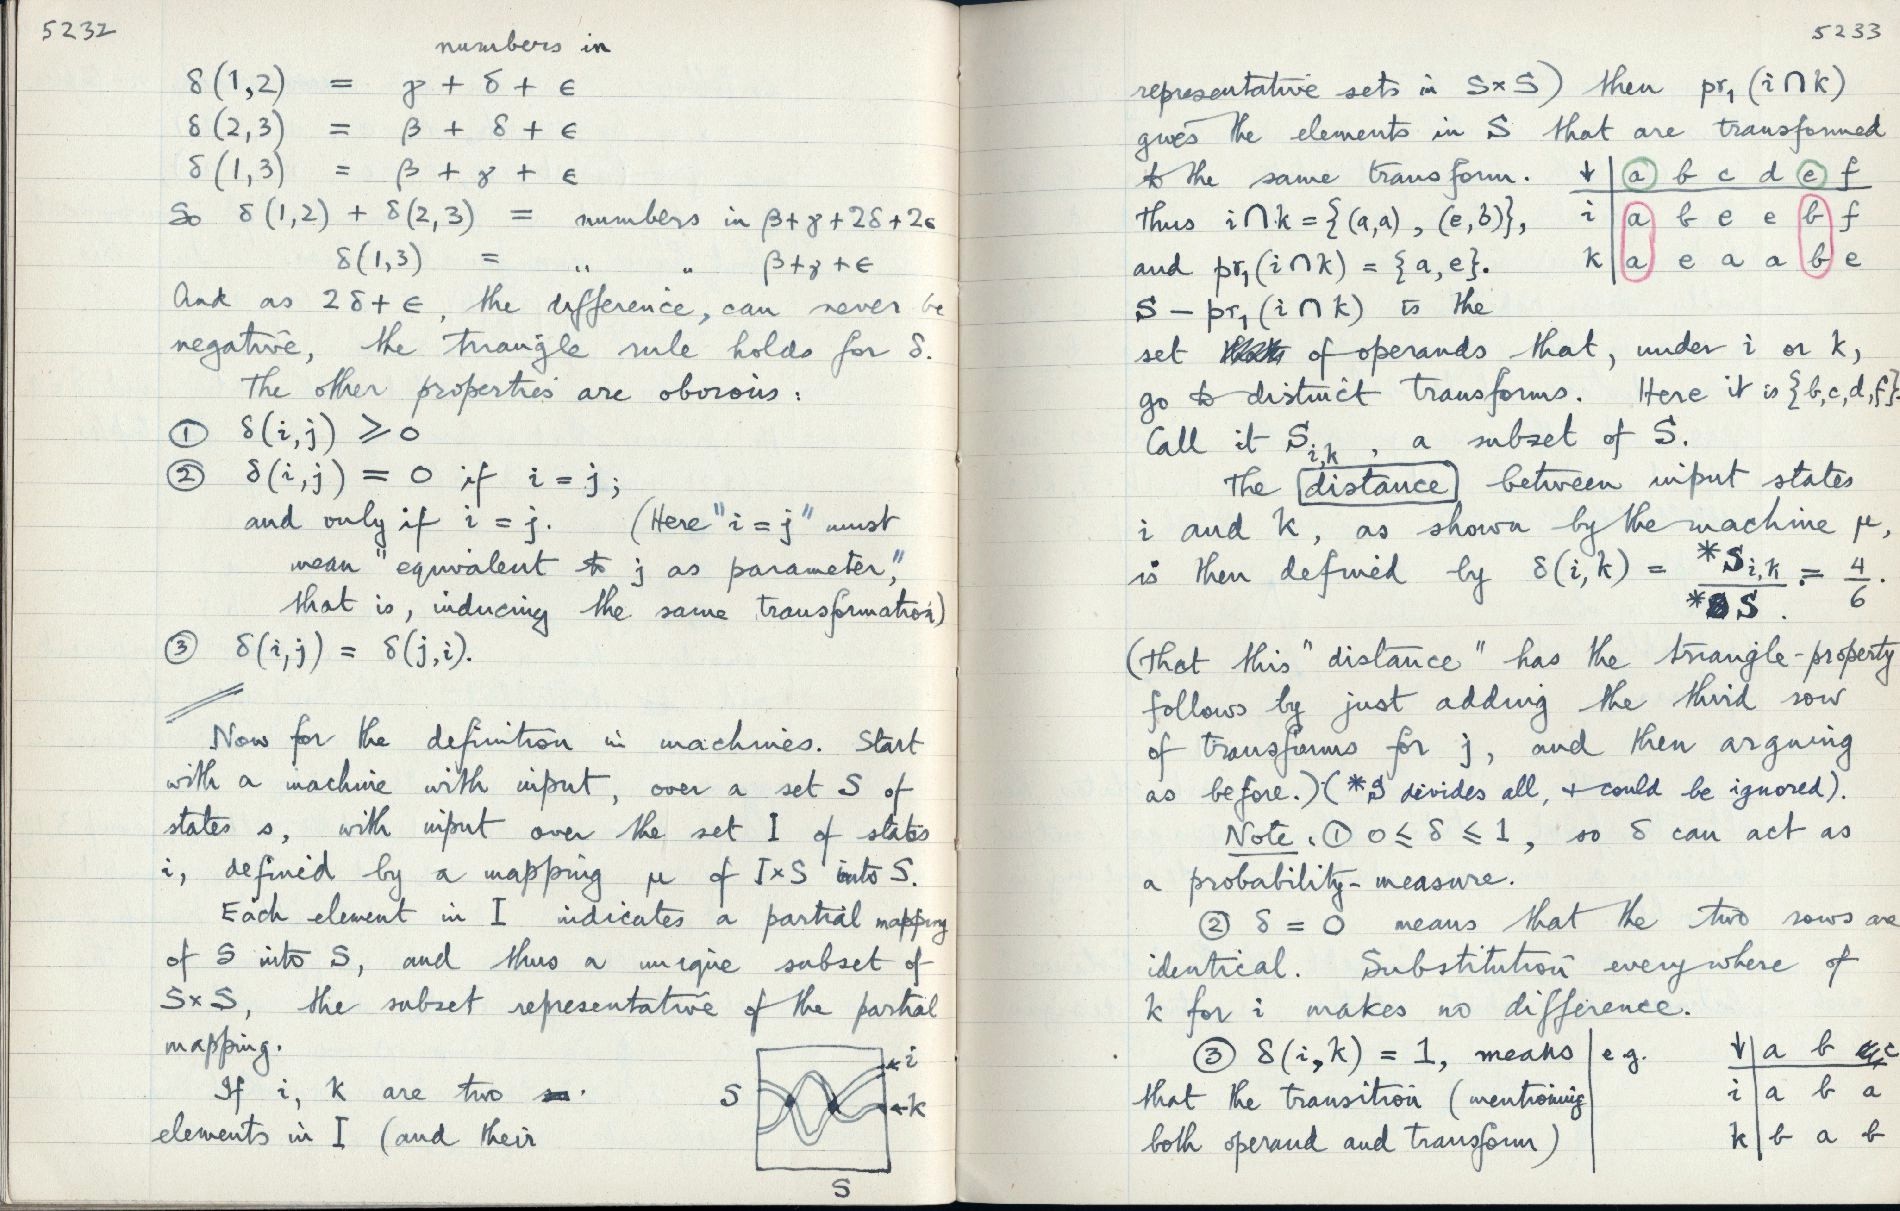 5232
numbers in
δ(1,2) = γ + δ + ε
δ(2,3) = β + δ + ε
δ(1,3) = β + γ + ε
So δ(1,2) + δ(2,3) = numbers in β+γ+2δ+2ε
δ(1,3) = " " β+γ+ε
And as 2δ+ε, the difference, can never be
negative, the triangle rule holds for δ.
The other properties are obvious:
① δ(i,j) ⩾ 0
② δ(i,j) = 0 if i = j;
and only if i = j. (Here "i = j" must
mean "equivalent to j as parameter,"
that is, inducing the same transformation)
③ δ(i,j) = δ(j,i).
Now for the definition in machines. Start
with a machine with input, over a set S of
states s, with input over the set I of states
i, defined by a mapping μ of I×S into S.
Each element in I indicates a partial mapping
of S into S, and thus a unique subset of
S×S, the subset representative of the partial
mapping.
If i, k are two
elements in I (and their
i
S
k
S
5233
representative sets in S×S) then pr₁(i∩k)
gives the elements in S that are transformed
to the same transform.
thus i∩k = {(a,a), (e,b)},
and pr₁(i∩k) = {a,e}.
↓ a b c d e f
i a b e e b f
k a e a a b e
S − pr₁(i∩k) is the
set of operands that, under i or k,
go to distinct transforms. Here it is {b,c,d,f}.
Call it S_{i,k}, a subset of S.
The distance between input states
i and k, as shown by the machine μ,
is then defined by δ(i,k) = *S_{i,k} / *S = 4/6.
(That this "distance" has the triangle-property
follows by just adding the third row
of transforms for j, and then arguing
as before.) (*S divides all, + could be ignored).
Note. ① 0 ⩽ δ ⩽ 1, so δ can act as
a probability-measure.
② δ = 0 means that the two rows are
identical. Substitution everywhere of
k for i makes no difference.
③ δ(i,k) = 1, means
that the transition (mentioning
both operand and transform)
e.g.
↓ a b c
i a b a
k b a b